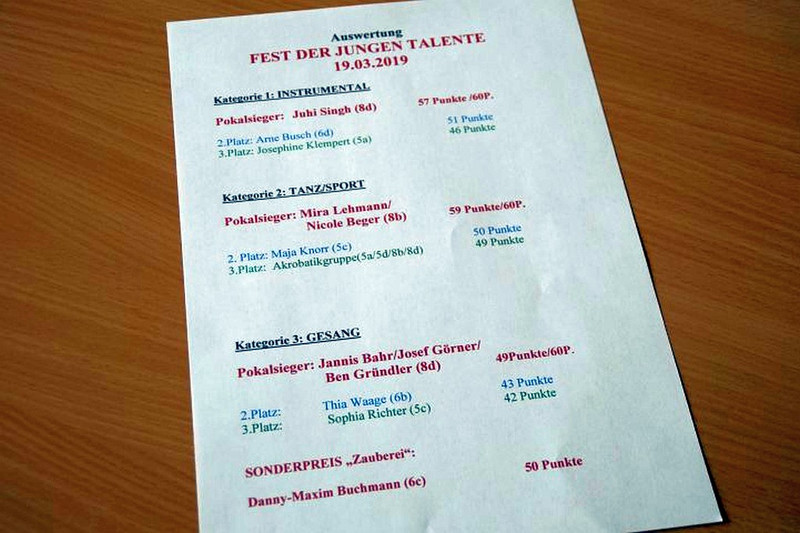 Auswertung
FEST DER JUNGEN TALENTE
19.03.2019
Kategorie 1: INSTRUMENTAL
Pokalsieger: Juhi Singh (8d) 57 Punkte /60P.
2.Platz: Arne Busch (6d) 51 Punkte
3.Platz: Josephine Klempert (5a) 46 Punkte
Kategorie 2: TANZ/SPORT
Pokalsieger: Mira Lehmann/ 59 Punkte/60P.
Nicole Beger (8b)
2. Platz: Maja Knorr (5c) 50 Punkte
3.Platz: Akrobatikgruppe(5a/5d/8b/8d) 49 Punkte
Kategorie 3: GESANG
Pokalsieger: Jannis Bahr/Josef Görner/ 49Punkte/60P.
Ben Gründler (8d)
2.Platz: Thia Waage (6b) 43 Punkte
3.Platz: Sophia Richter (5c) 42 Punkte
SONDERPREIS „Zauberei“:
Danny-Maxim Buchmann (6c) 50 Punkte